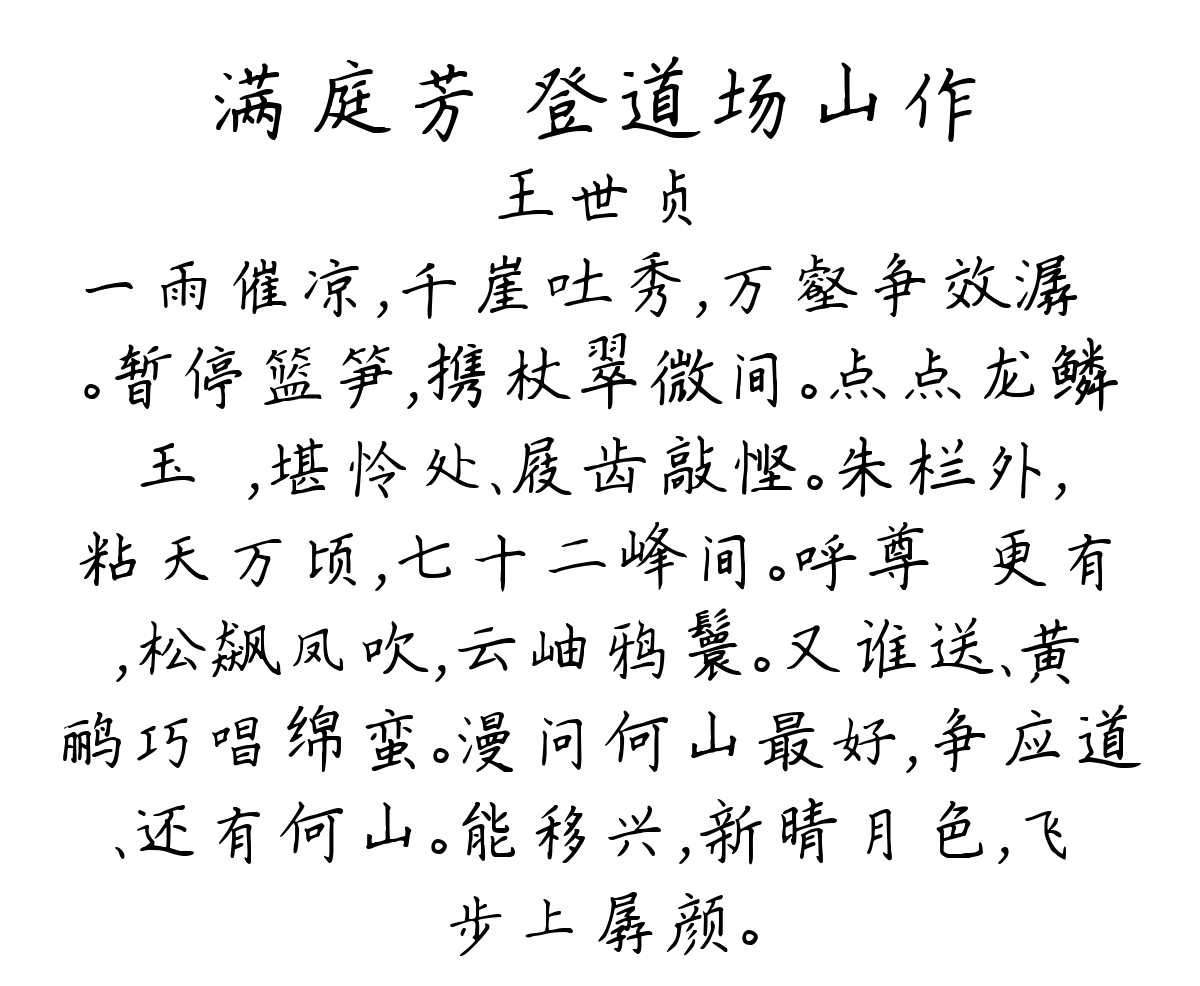 满庭芳 登道场山作
王世贞
一雨催凉,千崖吐秀,万壑争效潺
。暂停篮笋,携杖翠微间。点点龙鳞
玉 ,堪怜处、屐齿敲悭。朱栏外,
粘天万顷,七十二峰间。呼尊 更有
,松飙凤吹,云岫鸦鬟。又谁送、黄
鹂巧唱绵蛮。漫问何山最好,争应道
、还有何山。能移兴,新晴月色,飞
步上孱颜。